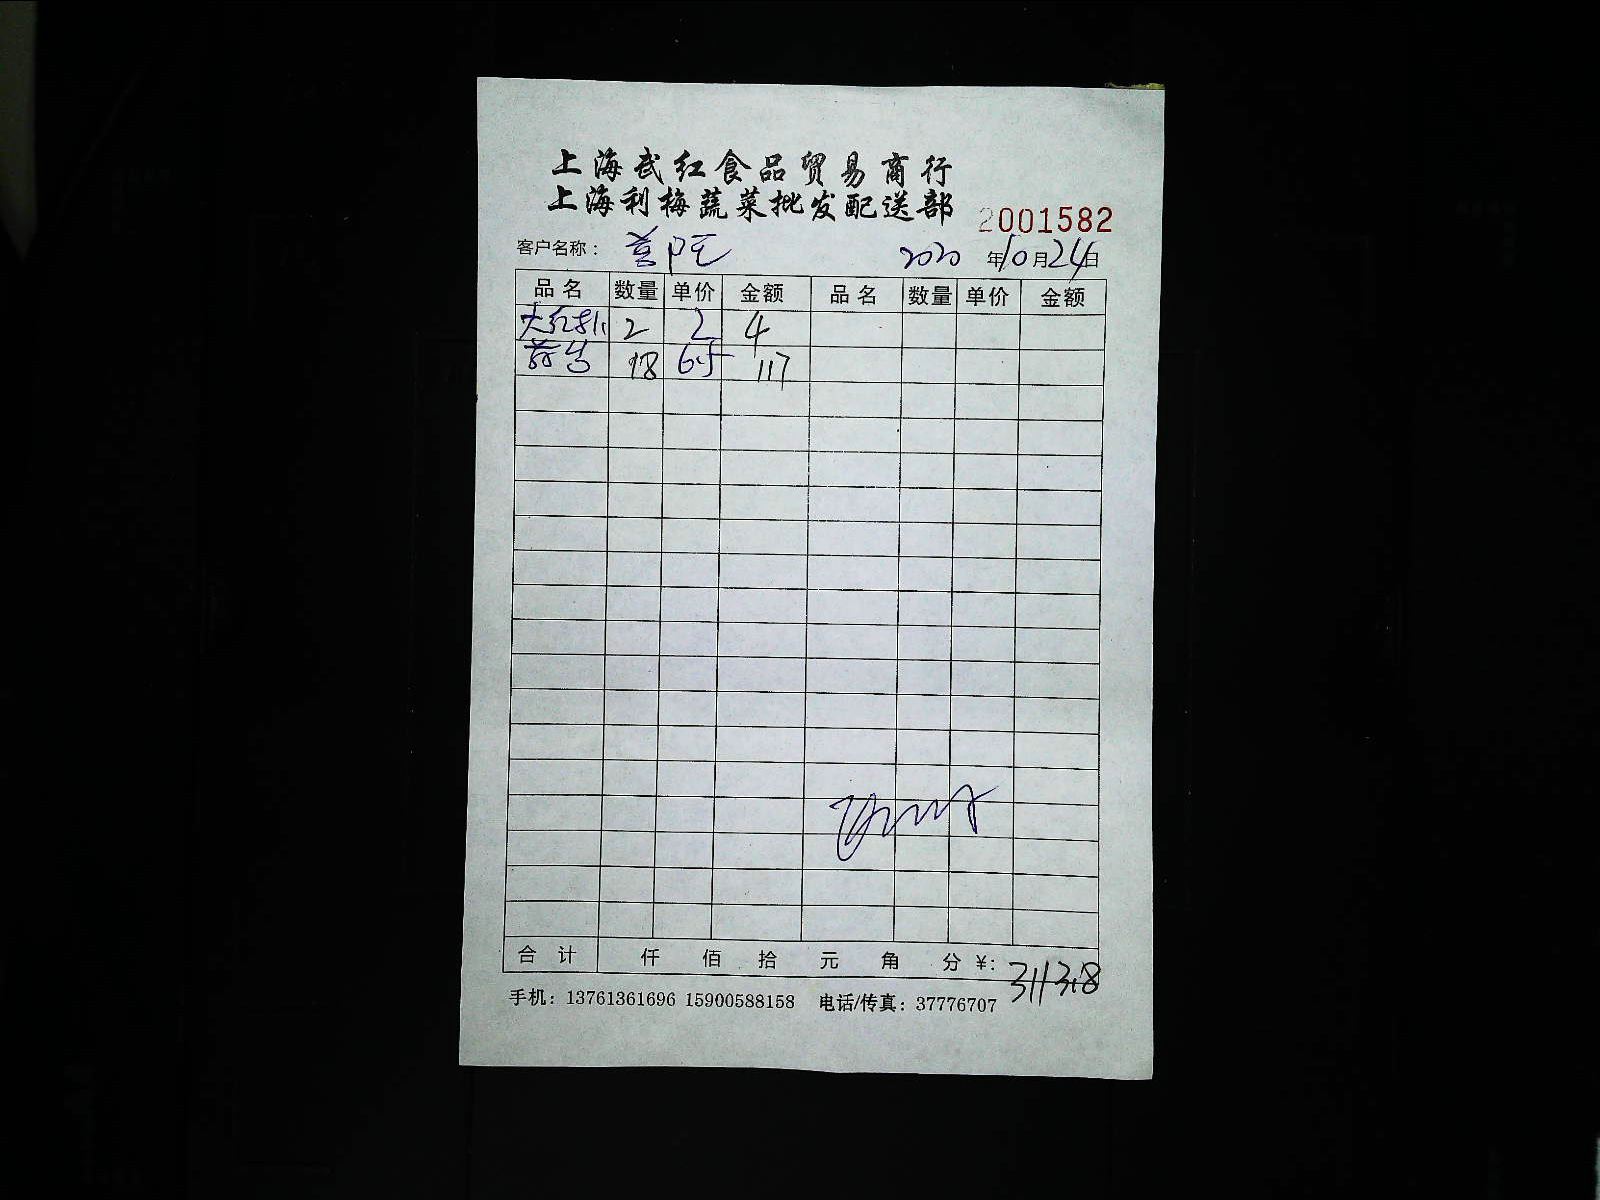 上海武红食品贸易商行
上海利梅蔬菜批发配送部
2001582
客户名称： 2020年10月24日
品名 数量 单价 金额 品名 数量 单价 金额
大红 2 2 4
18 6.5 117
合计 仟 佰 拾 元 角 分 ¥: 3113.8
手机：13761361696 15900588158 电话/传真：37776707